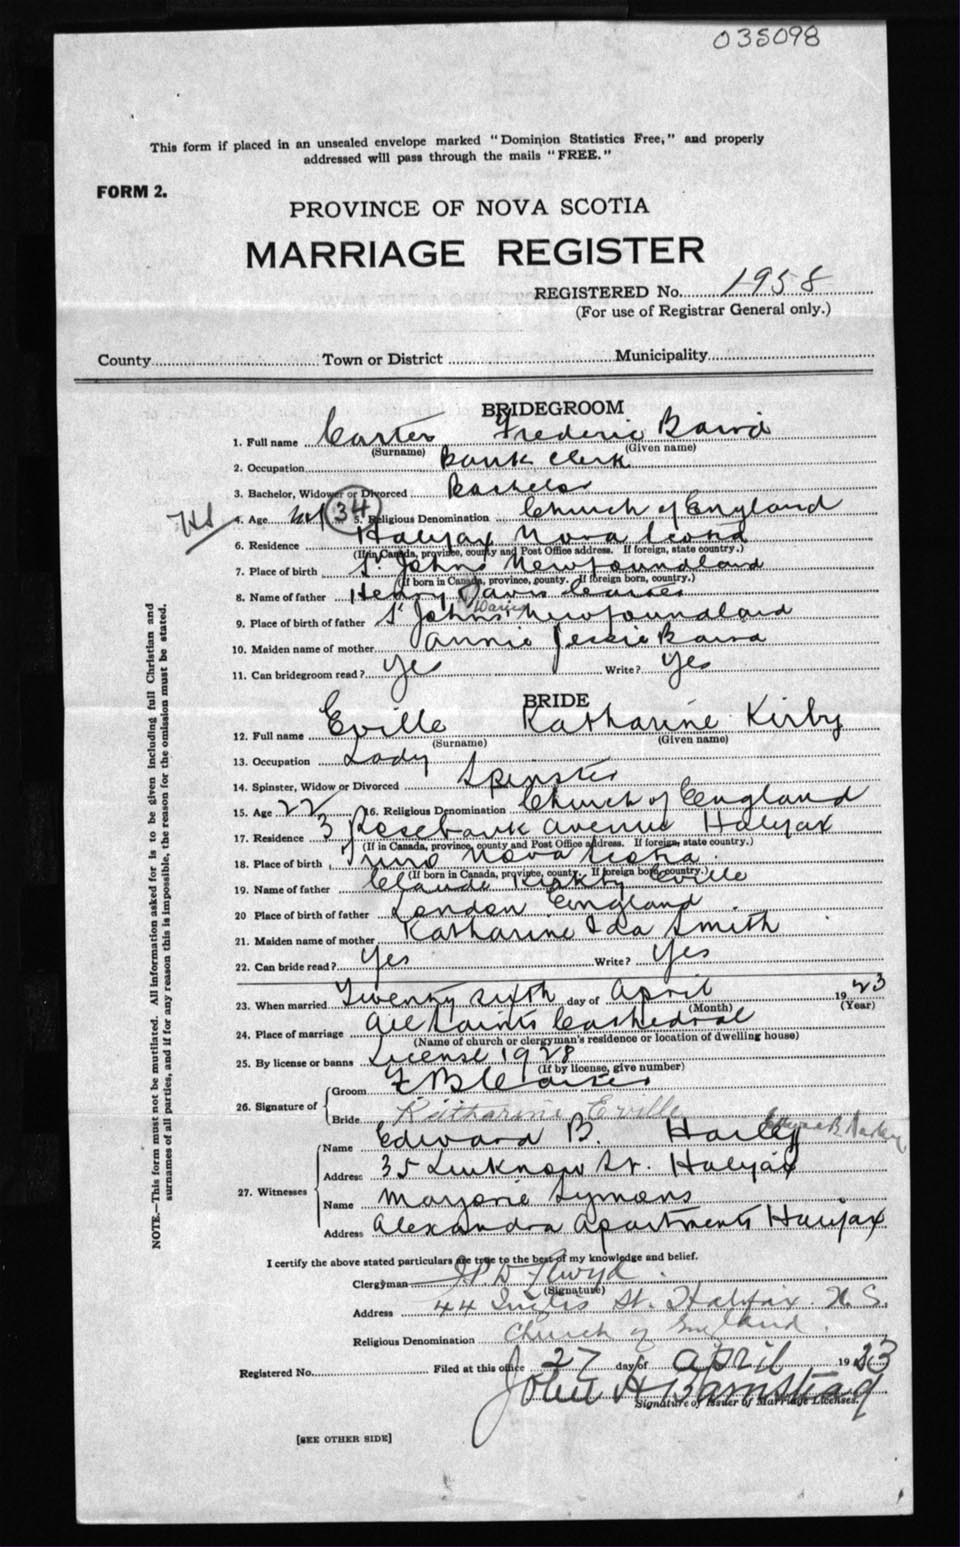 035098
This form if placed in an unsealed envelope marked "Dominion Statistics Free," and properly
addressed will pass through the mails "FREE."
FORM 2.
PROVINCE OF NOVA SCOTIA
MARRIAGE REGISTER
REGISTERED No. 1958
(For use of Registrar General only.)
County Town or District Municipality
BRIDEGROOM
1. Full name Carter Frederic Baird
(Surname) (Given name)
2. Occupation Bank Clerk
3. Bachelor, Widower or Divorced Bachelor
4. Age 34 5. Religious Denomination Church of England
6. Residence Halifax Nova Scotia
(If in Canada, province, county and Post Office address. If foreign, state country.)
7. Place of birth St Johns Newfoundland
(If born in Canada, province, county. If foreign born, country.)
8. Name of father Henry Davis Carter
9. Place of birth of father St Johns Newfoundland
10. Maiden name of mother Annie Jessie Baird
11. Can bridegroom read? Yes Write? Yes
BRIDE
12. Full name Eville Katharine Kirby
(Surname) (Given name)
13. Occupation Lady
14. Spinster, Widow or Divorced Spinster
15. Age 22 16. Religious Denomination Church of England
17. Residence 3 Rosebank Avenue Halifax
(If in Canada, province, county and Post Office address. If foreign, state country.)
18. Place of birth Truro Nova Scotia
(If born in Canada, province, county. If foreign born, country.)
19. Name of father Claude Kirkby Eville
20 Place of birth of father London England
21. Maiden name of mother Katharine Ida Smith
22. Can bride read? Yes Write? Yes
23. When married Twenty sixth day of April 1923
(Month) (Year)
24. Place of marriage All Saints Cathedral
(Name of church or clergyman's residence or location of dwelling house)
25. By license or banns License 1928
(If by license, give number)
26. Signature of Groom F B Carter
Bride Katharine Eville
27. Witnesses Name Edward B. Harley Edward B. Harley
Address 35 Lucknow St. Halifax
Name Marjorie Symons
Address Alexandra Apartments Halifax
I certify the above stated particulars are true to the best of my knowledge and belief.
Clergyman J.P.D. Llwyd
(Signature)
Address 44 Inglis St. Halifax N.S.
Religious Denomination Church of England.
Registered No. Filed at this office 27 day of April 1923
John H Barnstead
Signature of Issuer of Marriage Licenses.
[SEE OTHER SIDE]
NOTE.—This form must not be mutilated. All information asked for is to be given including full Christian and
surnames of all parties, and if for any reason this is impossible, the reason for the omission must be stated.